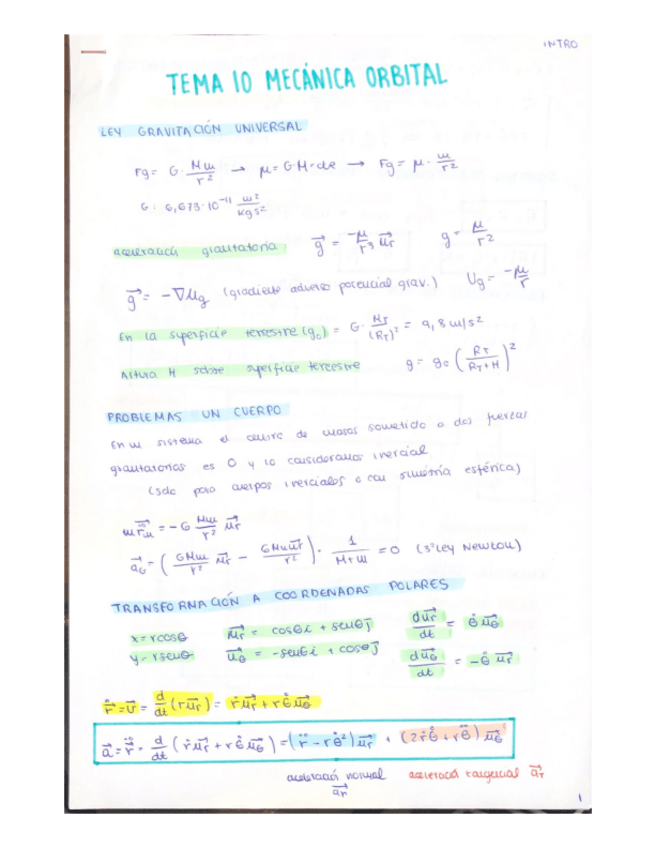 INTRO
TEMA 10 MECÁNICA ORBITAL
LEY GRAVITACIÓN UNIVERSAL
Fg = G · Mm/r² → μ = G·M = cte → Fg = μ · m/r²
G: 6,673·10⁻¹¹ m²/kg s²
aceleración gravitatoria: g⃗ = -μ/r³ u⃗r g = μ/r²
g⃗ = -∇Ug (gradiente adverso potencial grav.) Ug = -μ/r
En la superficie terrestre (g₀) = G· MT/(RT)² = 9,8 m/s²
Altura H sobre superficie terrestre g = g₀ (RT/(RT+H))²
PROBLEMAS UN CUERPO
En un sistema el centro de masas sometido a dos fuerzas
gravitatorias es 0 y lo consideramos inercial
(solo para cuerpos inerciales o con simetría esférica)
m r̈⃗m = -G Mm/r² u⃗r
a⃗G = (GMm/r² u⃗r - GMm u⃗r/r²) · 1/(M+m) = 0 (3ª ley Newton)
TRANSFORMACIÓN A COORDENADAS POLARES
x = r cosθ u⃗r = cosθ i + senθ j du⃗r/dt = θ̇ u⃗θ
y = r senθ u⃗θ = -senθ i + cosθ j du⃗θ/dt = -θ̇ u⃗r
ṙ⃗ = v⃗ = d/dt (r u⃗r) = ṙ u⃗r + r θ̇ u⃗θ
a⃗ = r̈⃗ = d/dt (ṙ u⃗r + r θ̇ u⃗θ) = (r̈ - r θ̇²) u⃗r + (2ṙθ̇ + rθ̈) u⃗θ
aceleración normal aceleración tangencial
1